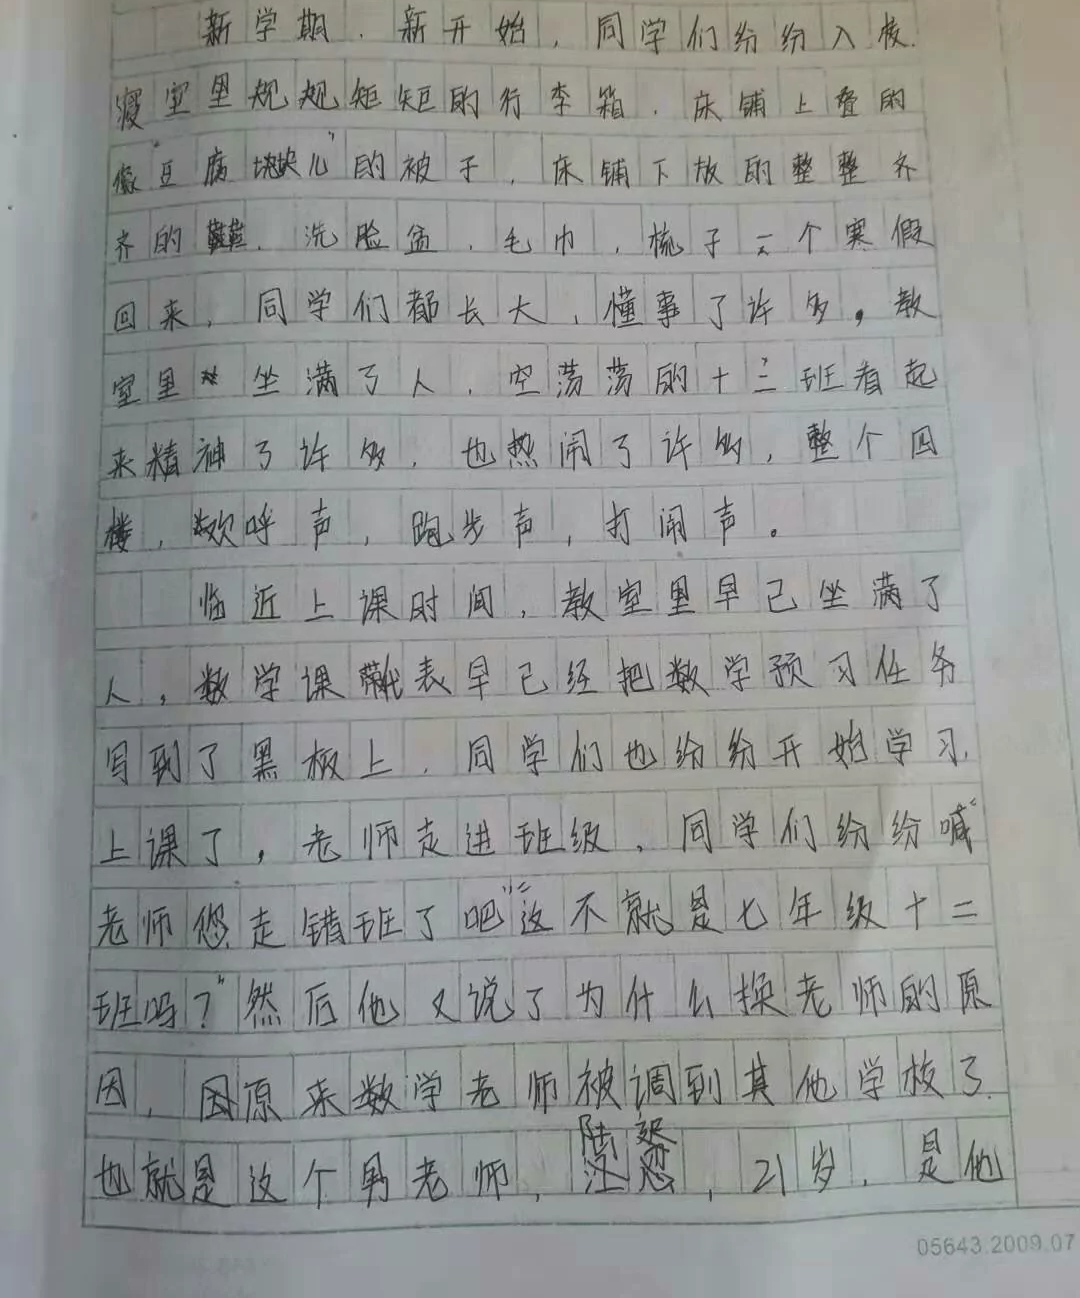 新学期，新开始，同学们纷纷入校.
寝室里规规矩矩的行李箱，床铺上叠的
像“豆腐块儿”的被子，床铺下放的整整齐
齐的鞋，洗脸盆，毛巾，梳子一个寒假
回来，同学们都长大，懂事了许多，教
室里坐满了人，空荡荡的十三班看起
来精神了许多，也热闹了许多，整个四
楼，欢呼声，跑步声，打闹声。
临近上课时间，教室里早已坐满了
人，数学课代表早已经把数学预习任务
写到了黑板上，同学们也纷纷开始学习.
上课了，老师走进班级，同学们纷纷喊“
老师您走错班了吧”“这不就是七年级十二
班吗？”然后他又说了为什么换老师的原
因，因原来数学老师被调到其他学校了.
也就是这个男老师，，21岁，是他
05643.2009.07